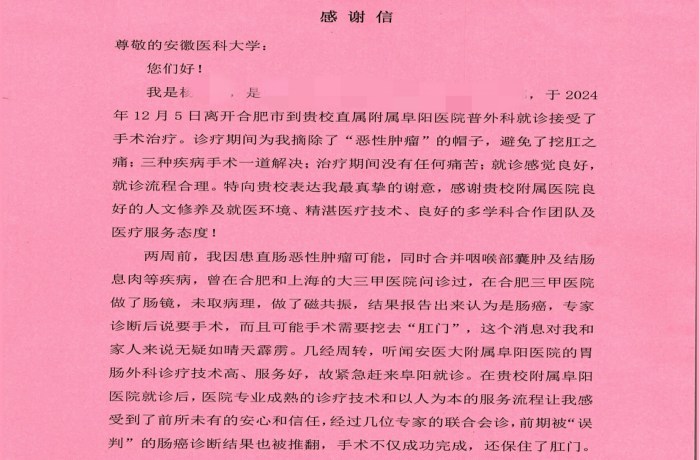 感谢信
尊敬的安徽医科大学：
您们好！
我是 ，是 ，于 2024
年 12 月 5 日离开合肥市到贵校直属附属阜阳医院普外科就诊接受了
手术治疗。诊疗期间为我摘除了“恶性肿瘤”的帽子，避免了挖肛之
痛；三种疾病手术一道解决；治疗期间没有任何痛苦；就诊感觉良好，
就诊流程合理。特向贵校表达我最真挚的谢意，感谢贵校附属医院良
好的人文修养及就医环境、精湛医疗技术、良好的多学科合作团队及
医疗服务态度！
两周前，我因患直肠恶性肿瘤可能，同时合并咽喉部囊肿及结肠
息肉等疾病，曾在合肥和上海的大三甲医院问诊过，在合肥三甲医院
做了肠镜，未取病理，做了磁共振，结果报告出来认为是肠癌，专家
诊断后说要手术，而且可能手术需要挖去“肛门”，这个消息对我和
家人来说无疑如晴天霹雳。几经周转，听闻安医大附属阜阳医院的胃
肠外科诊疗技术高、服务好，故紧急赶来阜阳就诊。在贵校附属阜阳
医院就诊后，医院专业成熟的诊疗技术和以人为本的服务流程让我感
受到了前所未有的安心和信任，经过几位专家的联合会诊，前期被“误
判”的肠癌诊断结果也被推翻，手术不仅成功完成，还保住了肛门。